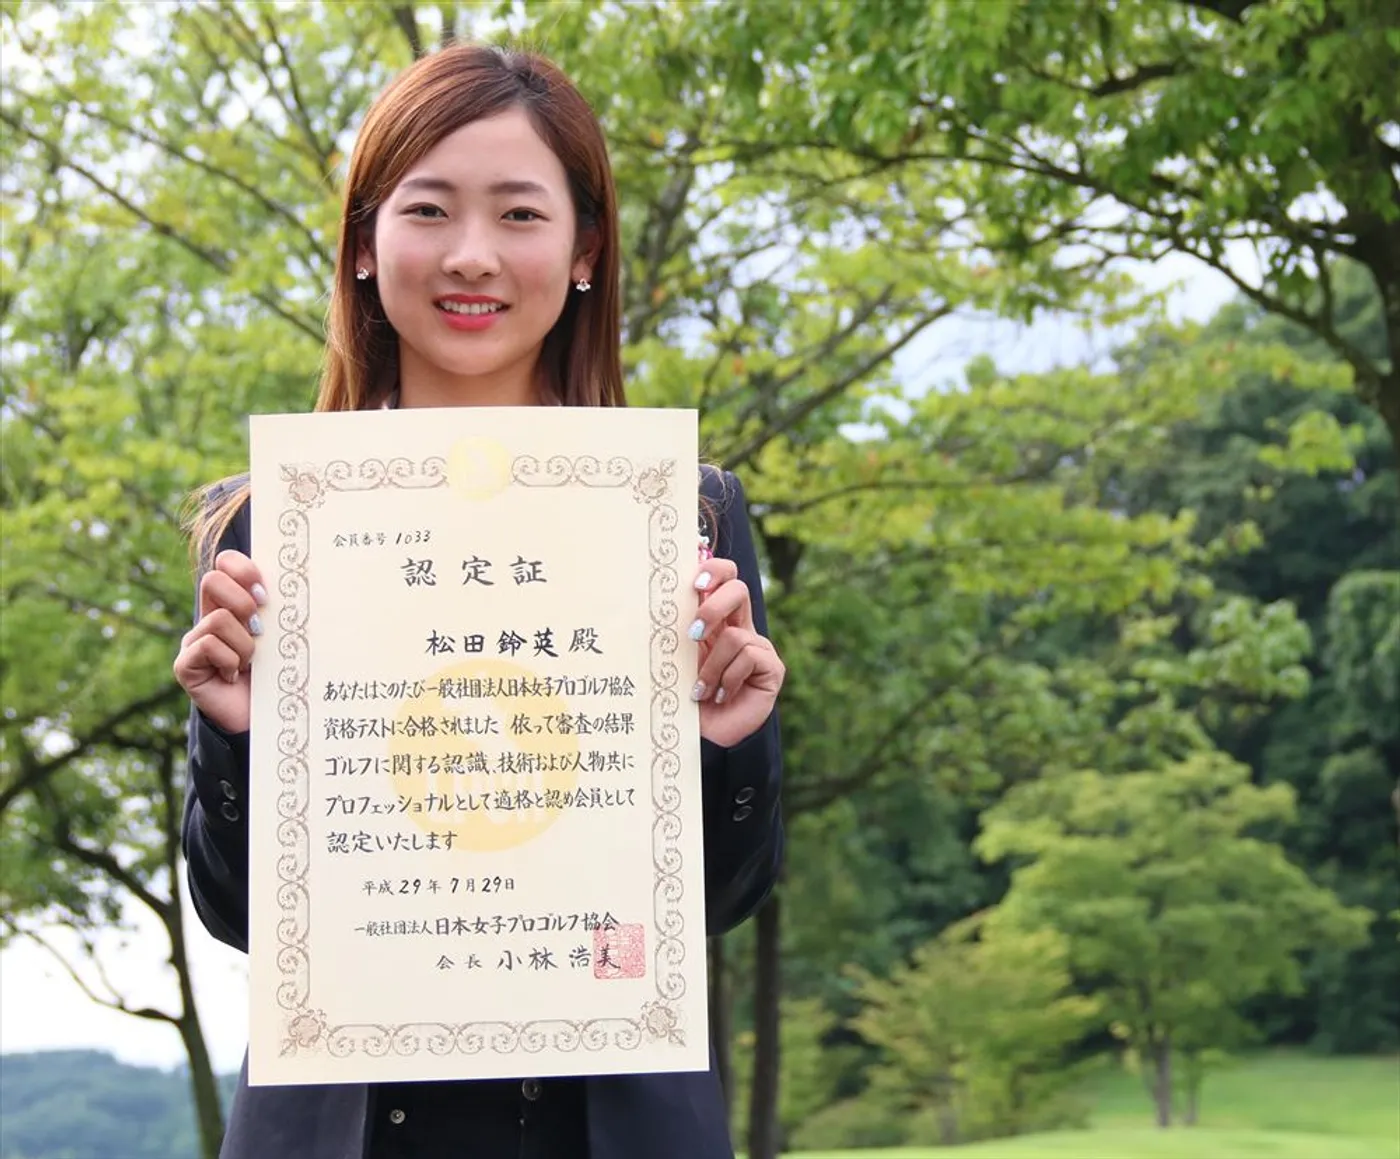 会員番号 1033
認定証
松田鈴英殿
あなたはこのたび一般社団法人日本女子プロゴルフ協会
資格テストに合格されました 依って審査の結果
ゴルフに関する認識、技術および人物共に
プロフェッショナルとして適格と認め会員として
認定いたします
平成29年7月29日
一般社団法人日本女子プロゴルフ協会
会長 小林浩美